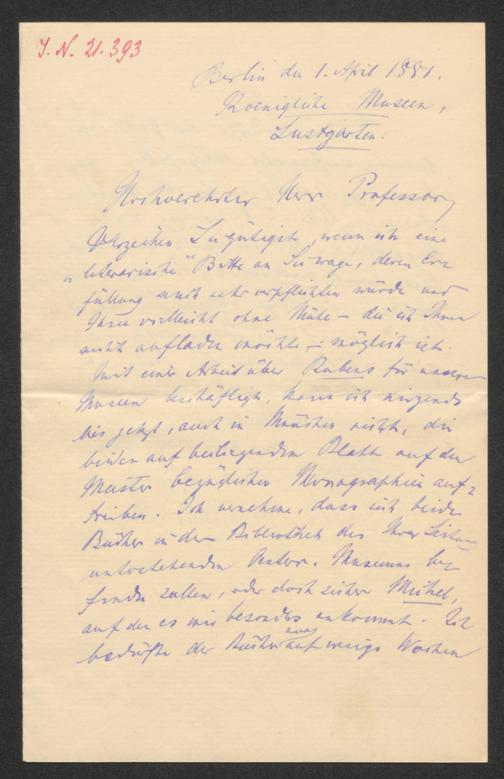 J. N. 21.393
Berlin den 1. April 1881.
Koenigliche Museen,
Lustgarten.
Hochverehrter Herr Professor,
Verzeihen Sie gütigst, wenn ich eine
„literarische" Bitte an Sie wage, deren Er=
füllung mich sehr verpflichten würde und
Ihnen vielleicht ohne Mühe – die ich Ihnen
nicht aufladen möchte – möglich ist.
Mit einer Arbeit über Rubens für unsere
Museen beschäftigt, kann ich nirgends
bis jetzt, auch in München nicht, die
beiden auf beiliegendem Blatt auf den
Meister bezüglichen Monographien auf=
treiben. Ich vernehme, dass sich beide
Bücher in der Bibliothek des Ihrer Leitung
unterstehenden Oesterr. Museums be=
finden sollen, oder doch sicher Michel,
auf den es mir besonders ankommt. Ich
bedürfte der Bücher nur auf wenige Wochen